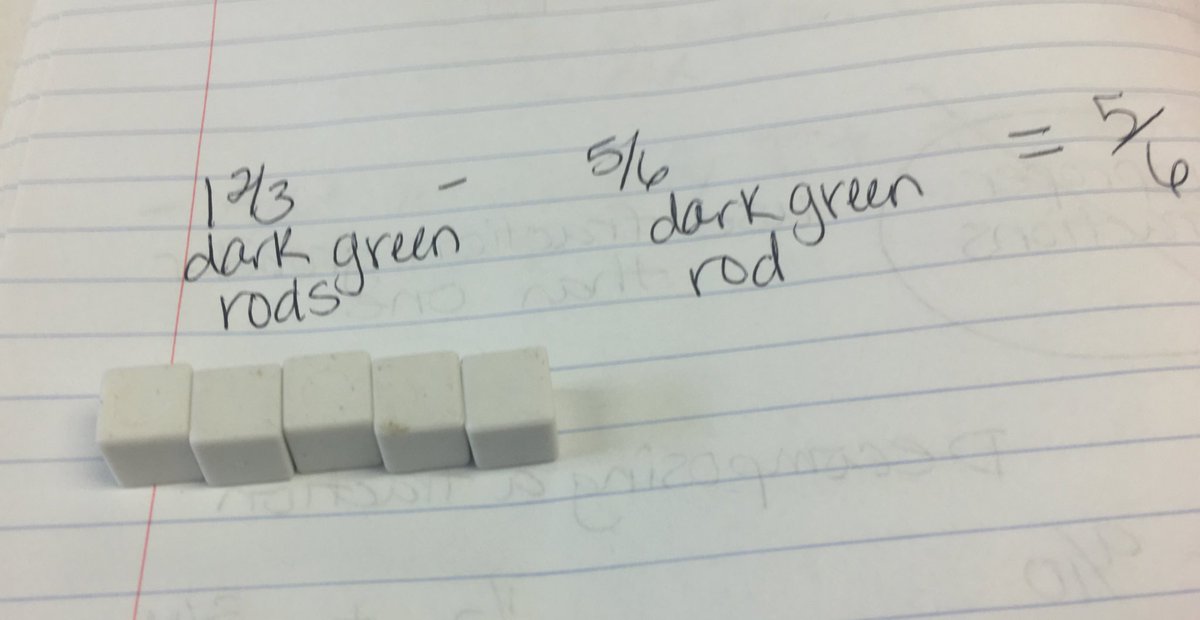 1 2/3 - 5/6 = 5/6
dark green dark green
rods rod
Decomposing a fraction